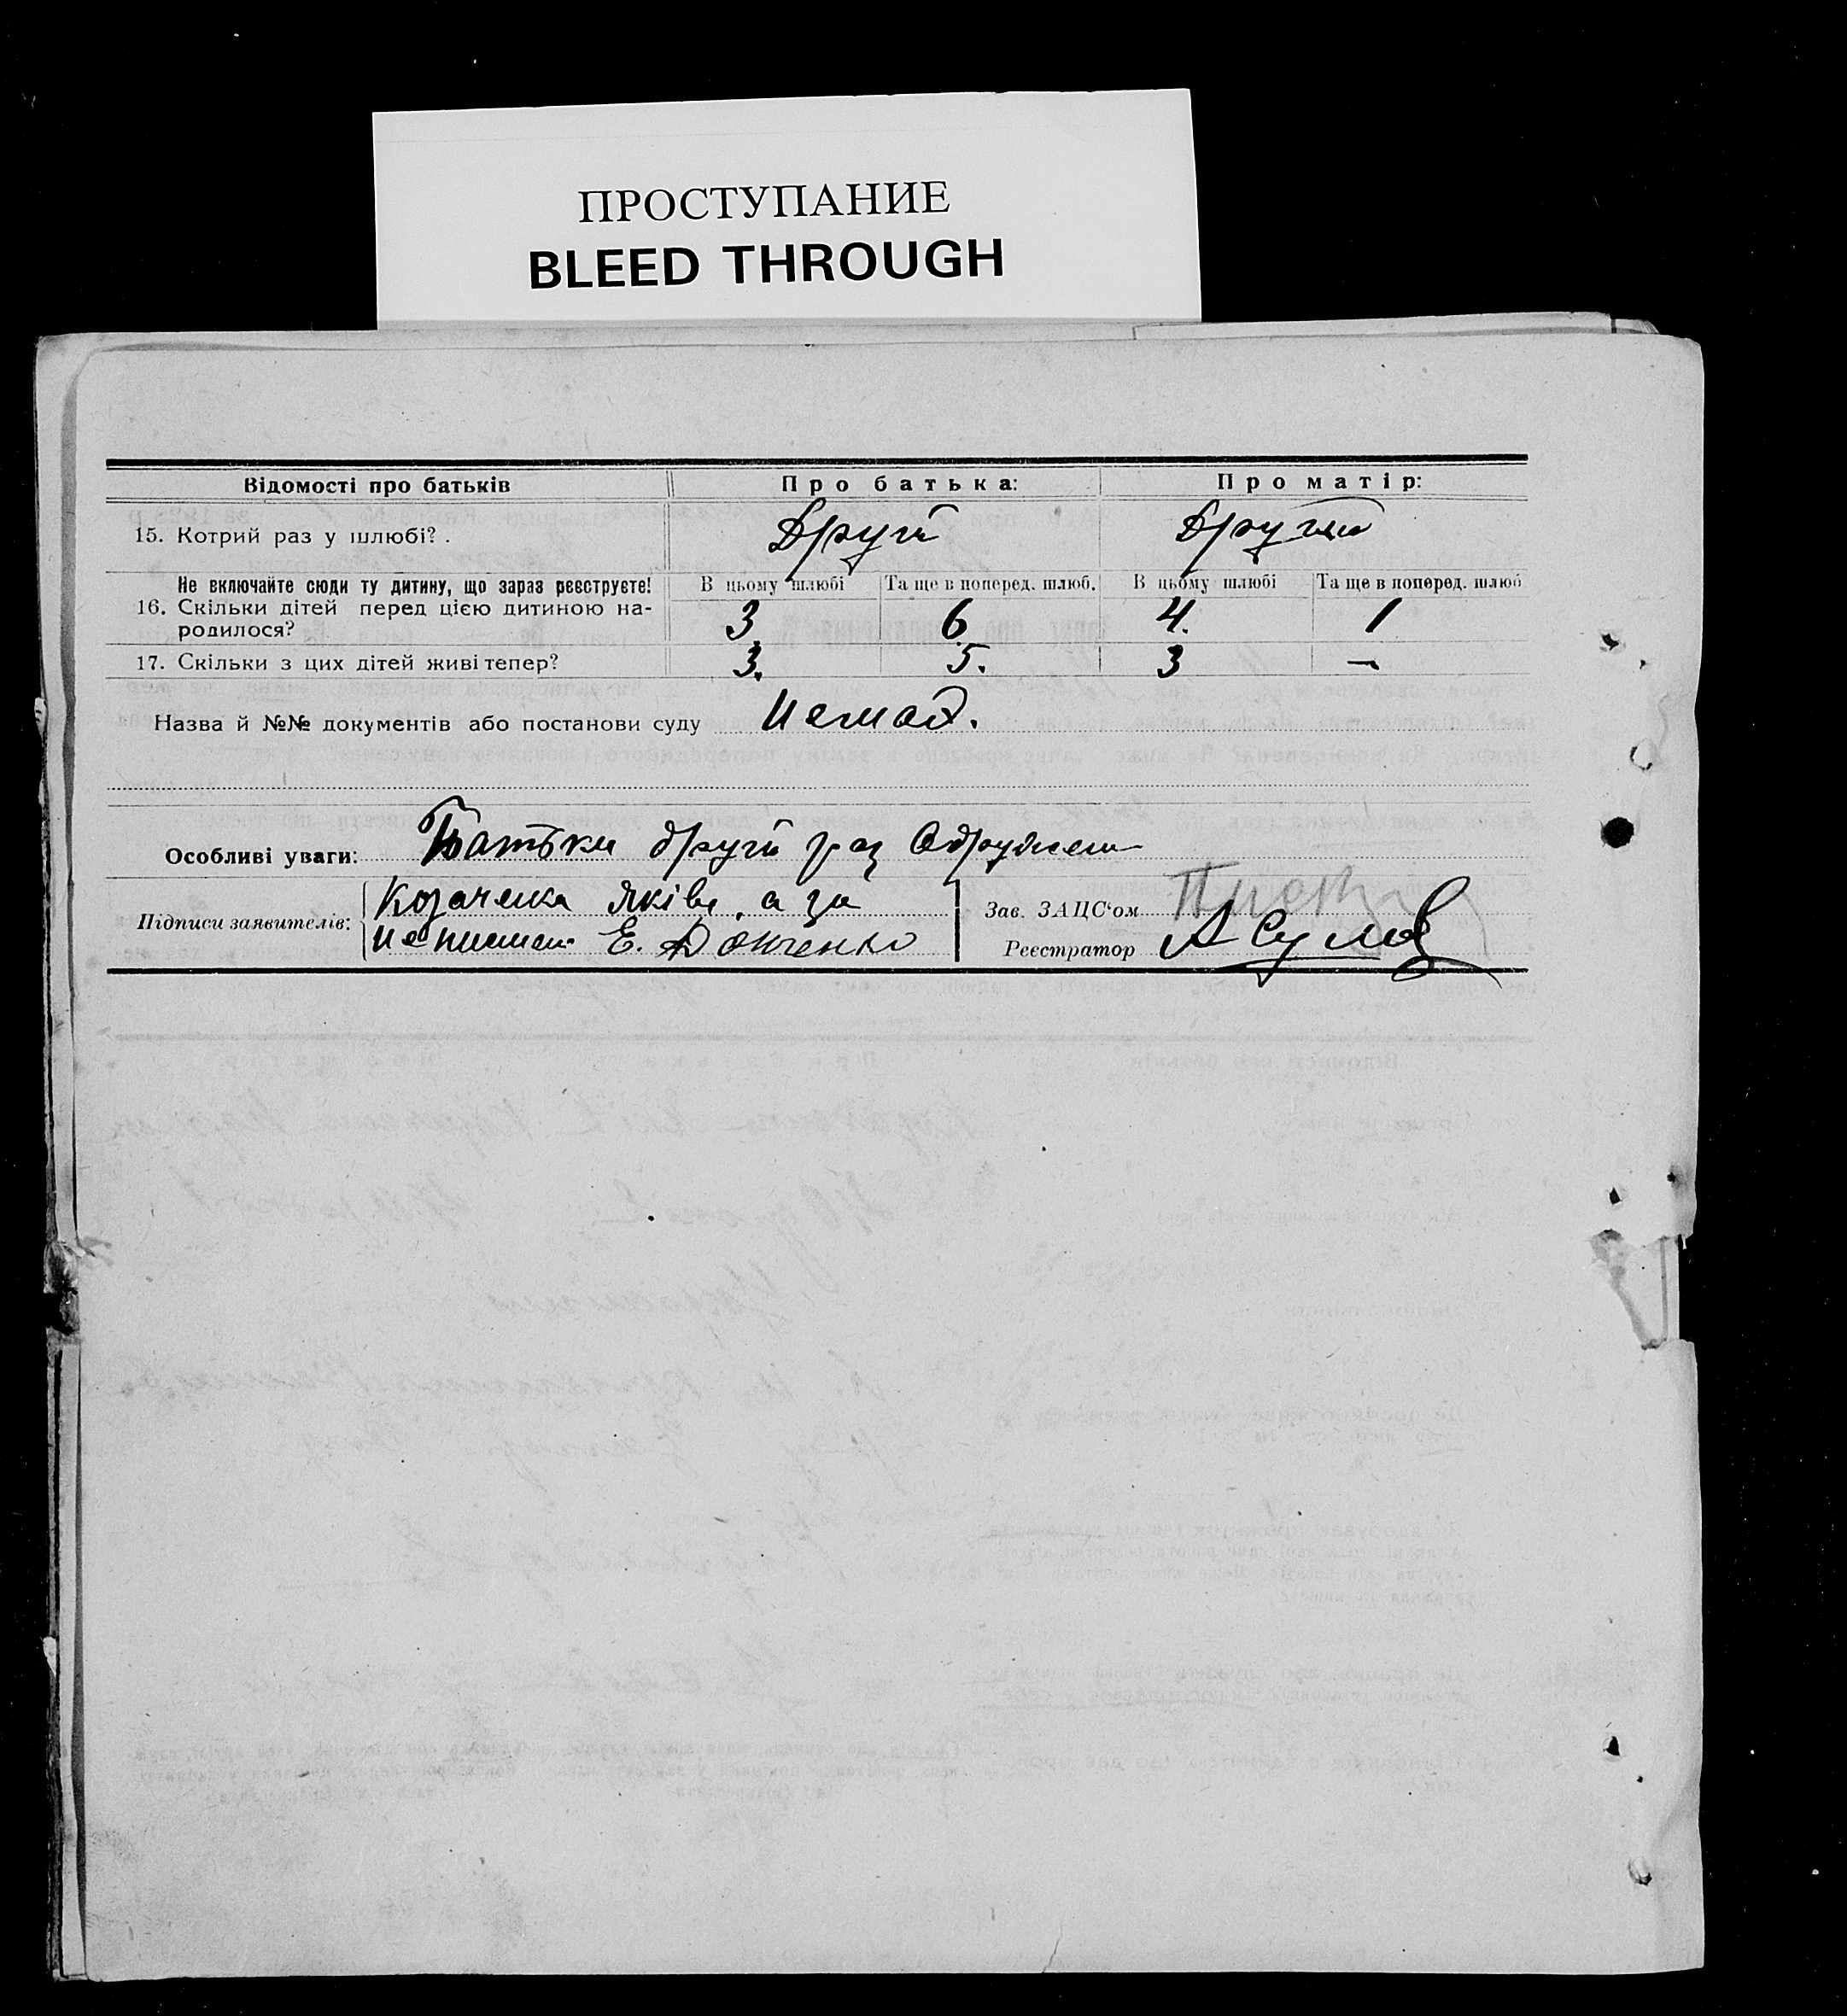 ПРОСТУПАНИЕ
BLEED THROUGH
Відомості про батьків Про батька: Про матір:
15. Котрий раз у шлюбі? . Другий Другий
Не включайте сюди ту дитину, що зараз реєструєте! В цьому шлюбі Та ще в поперед. шлюб. В цьому шлюбі Та ще в поперед. шлюб
16. Скільки дітей перед цією дитиною на-
родилося? 3 6 4. 1
17. Скільки з цих дітей живі тепер? 3. 5. 3 —
Назва й №№ документів або постанови суду Немає.
Особливі уваги: Батьки другий раз Одружені
Підписи заявителів: Козаченка Яків, а за
неписьмен. Е.
Зав. ЗАЦС'ом
Реєстратор